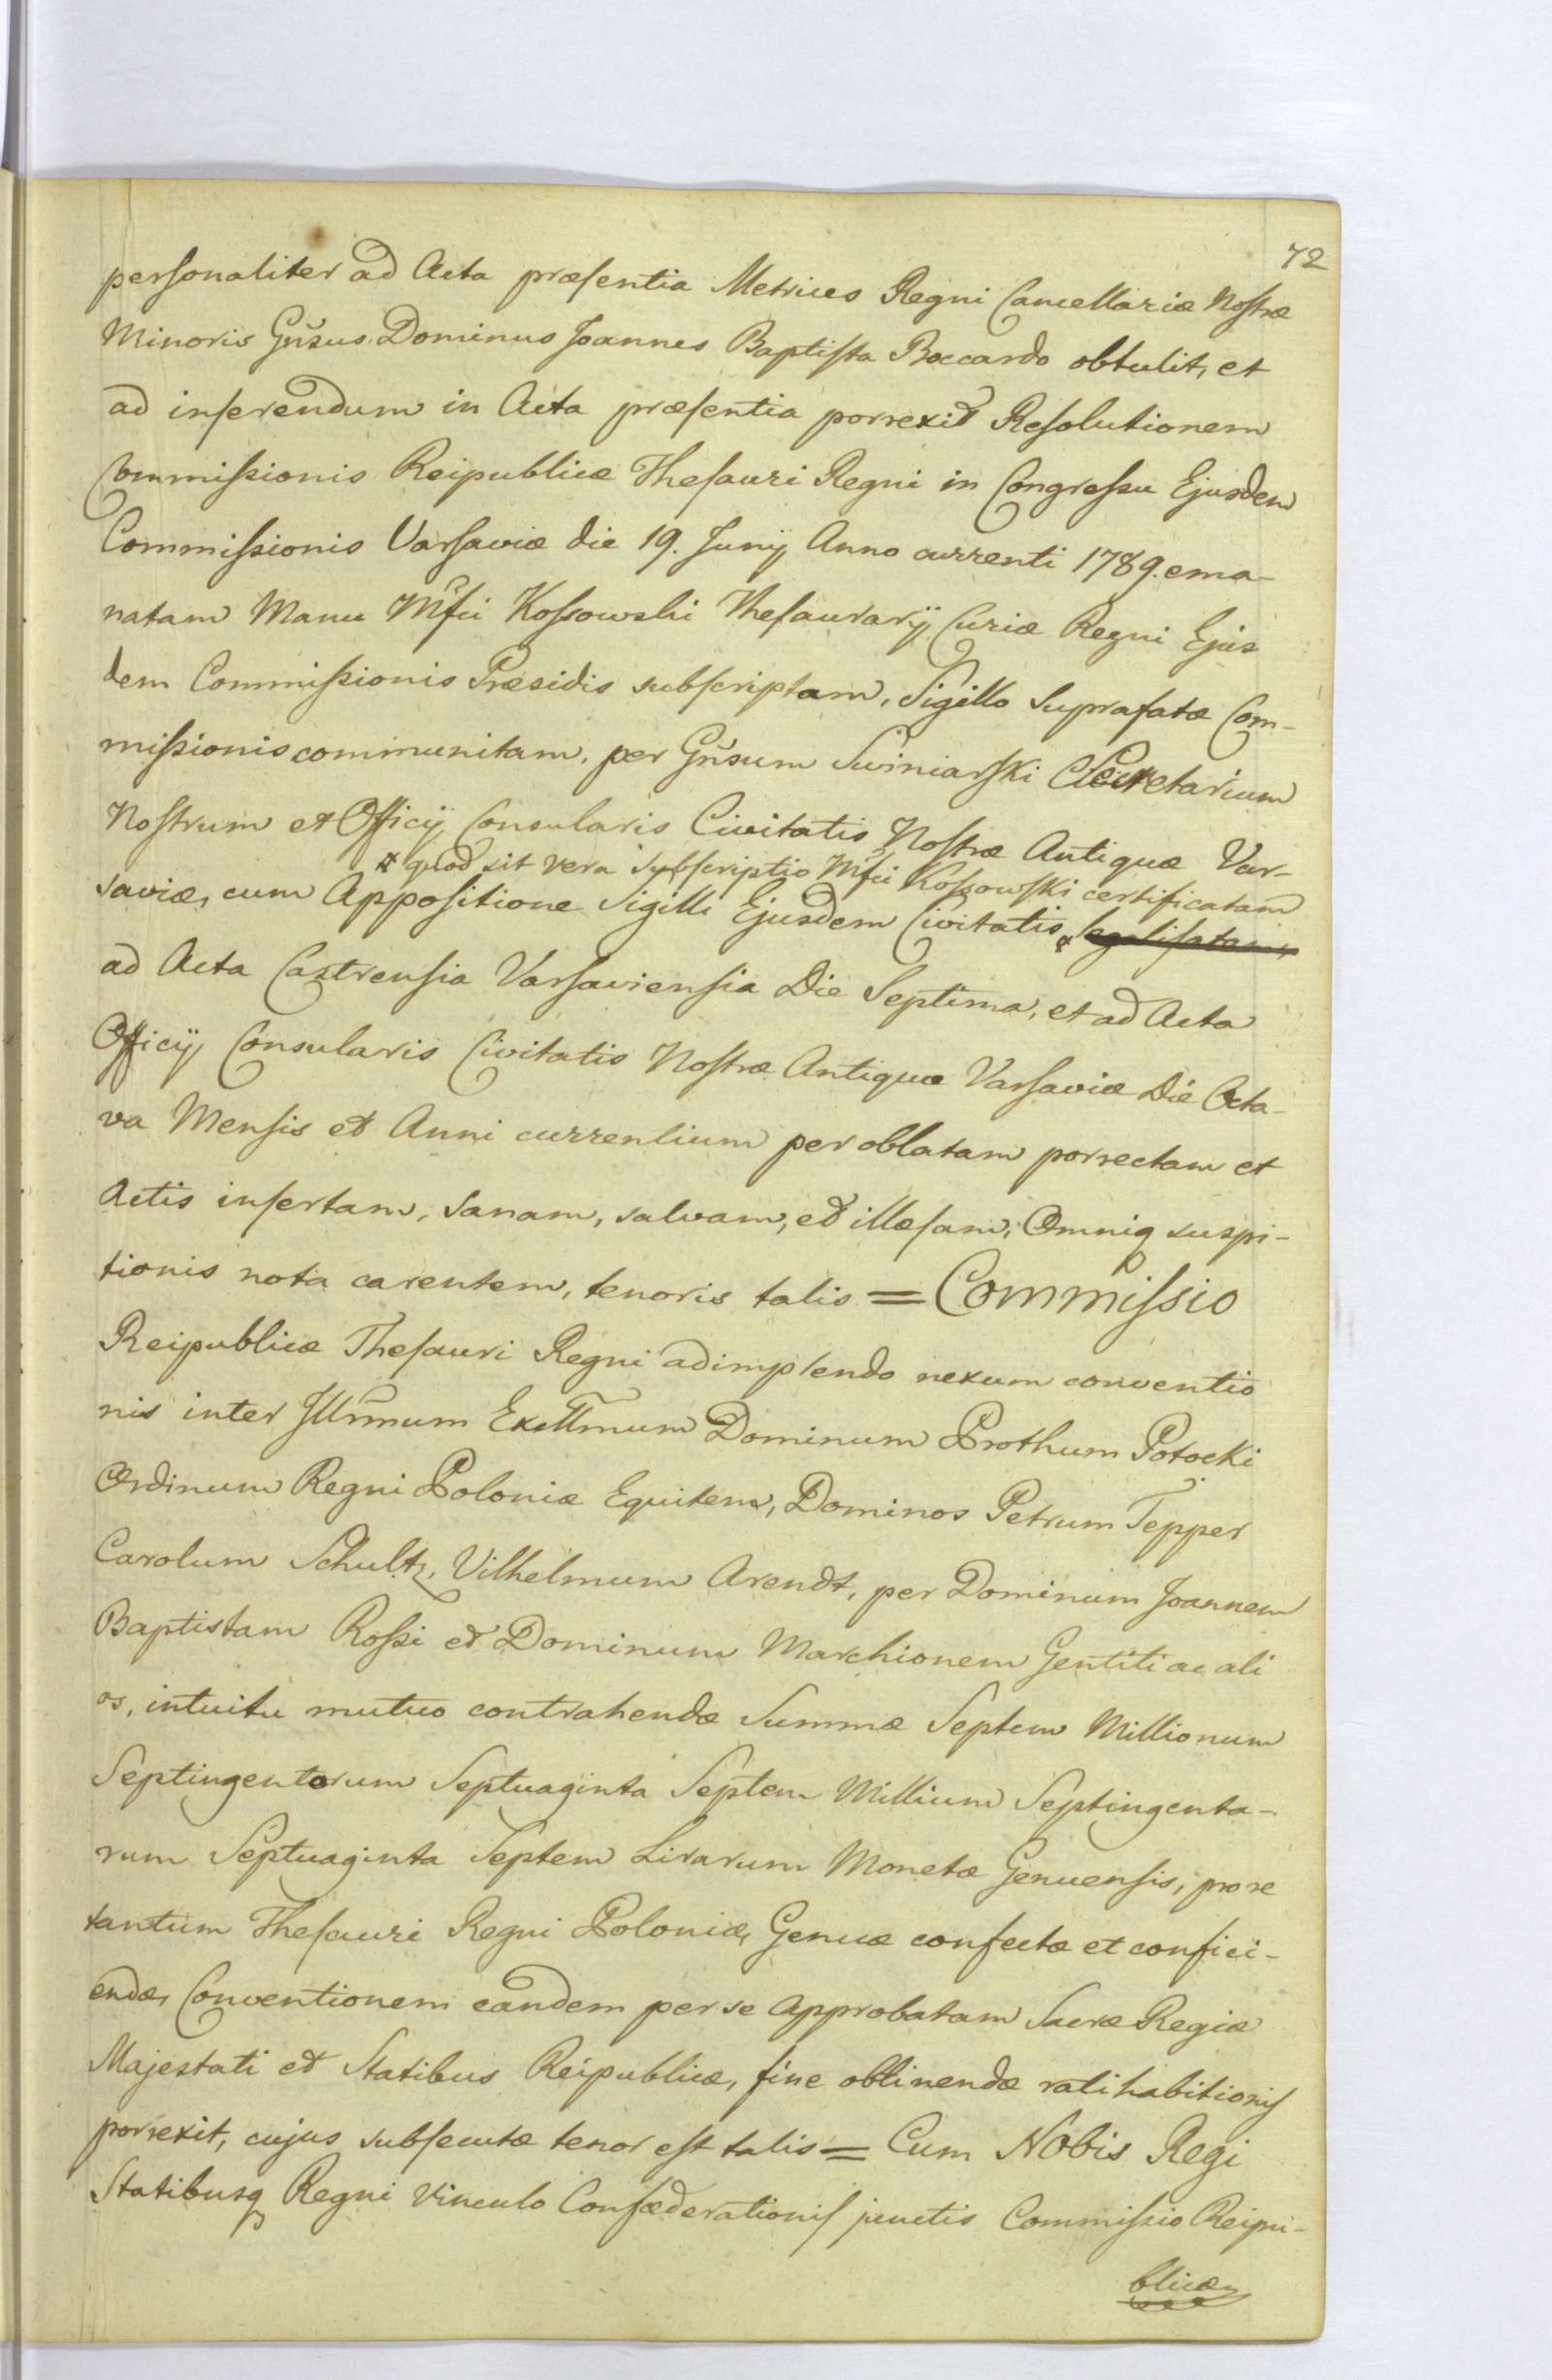 72
personaliter ad Acta præsentia Metrices Regni Cancellariæ Nostræ
Minoris Gñsus Dominus Joannes Baptista Boccardo obtulit, et
ad inserendum in Acta præsentia porrexit Resolutionem
Commissionis Reipublicæ Thesauri Regni in Congressu Ejusdem
Commissionis Varsaviæ die 19. Junij Anno currenti 1789. ema-
natam Manu Mfci Kossowski Thesaurarij Curiæ Regni Ejus
dem Commissionis Præsidis subscriptam, Sigillo Suprafatæ Com-
missionis communitam, per Gñsum Swiniarski Secretarium
Nostrum et Officij Consularis Civitatis Nostræ Antiquæ Var-
# quod sit vera subscriptio Mfci Kossowski certificatam
saviæ, cum Appositione Sigilli Ejusdem Civitatis # legalisatam,
ad Acta Castrensia Varsaviensia Die Septima, et ad Acta
Officij Consularis Civitatis Nostræ Antiquæ Varsaviæ Die Octa-
va Mensis et Anni currentium per oblatam porrectam et
Actis insertam, sanam, salvam, et illæsam, Omniq suspi-
tionis nota carentem, tenoris talis = Commissio
Reipublicæ Thesauri Regni adimplendo nexum conventio
nis inter Illrmum Exllmum Dominum Prothum Potocki
Ordinum Regni Poloniæ Equitem, Dominos Petrum Tepper
Carolum Schultz, Vilhelmum Arendt, per Dominum Joannem
Baptistam Rossi et Dominum Marchionem Gentili ac ali
os, intuitu mutuo contrahendæ Summæ Septem Millionum
Septingentorum Septuaginta Septem Millium Septingenta-
rum Septuaginta Septem Lirarum Monetæ Genuensis, pro re
tantum Thesauri Regni Poloniæ, Genuæ confectæ et confici-
endæ, Conventionem eandem per se Approbatam Sacræ Regiæ
Majestati et Statibus Reipublicæ, fine obtinendæ ratihabitionis
porrexit, cujus subsecutæ tenor est talis = Cum Nobis Regi
Statibusq Regni Vinculo Confæderationis junctis Commissio Reipu-
blicæ